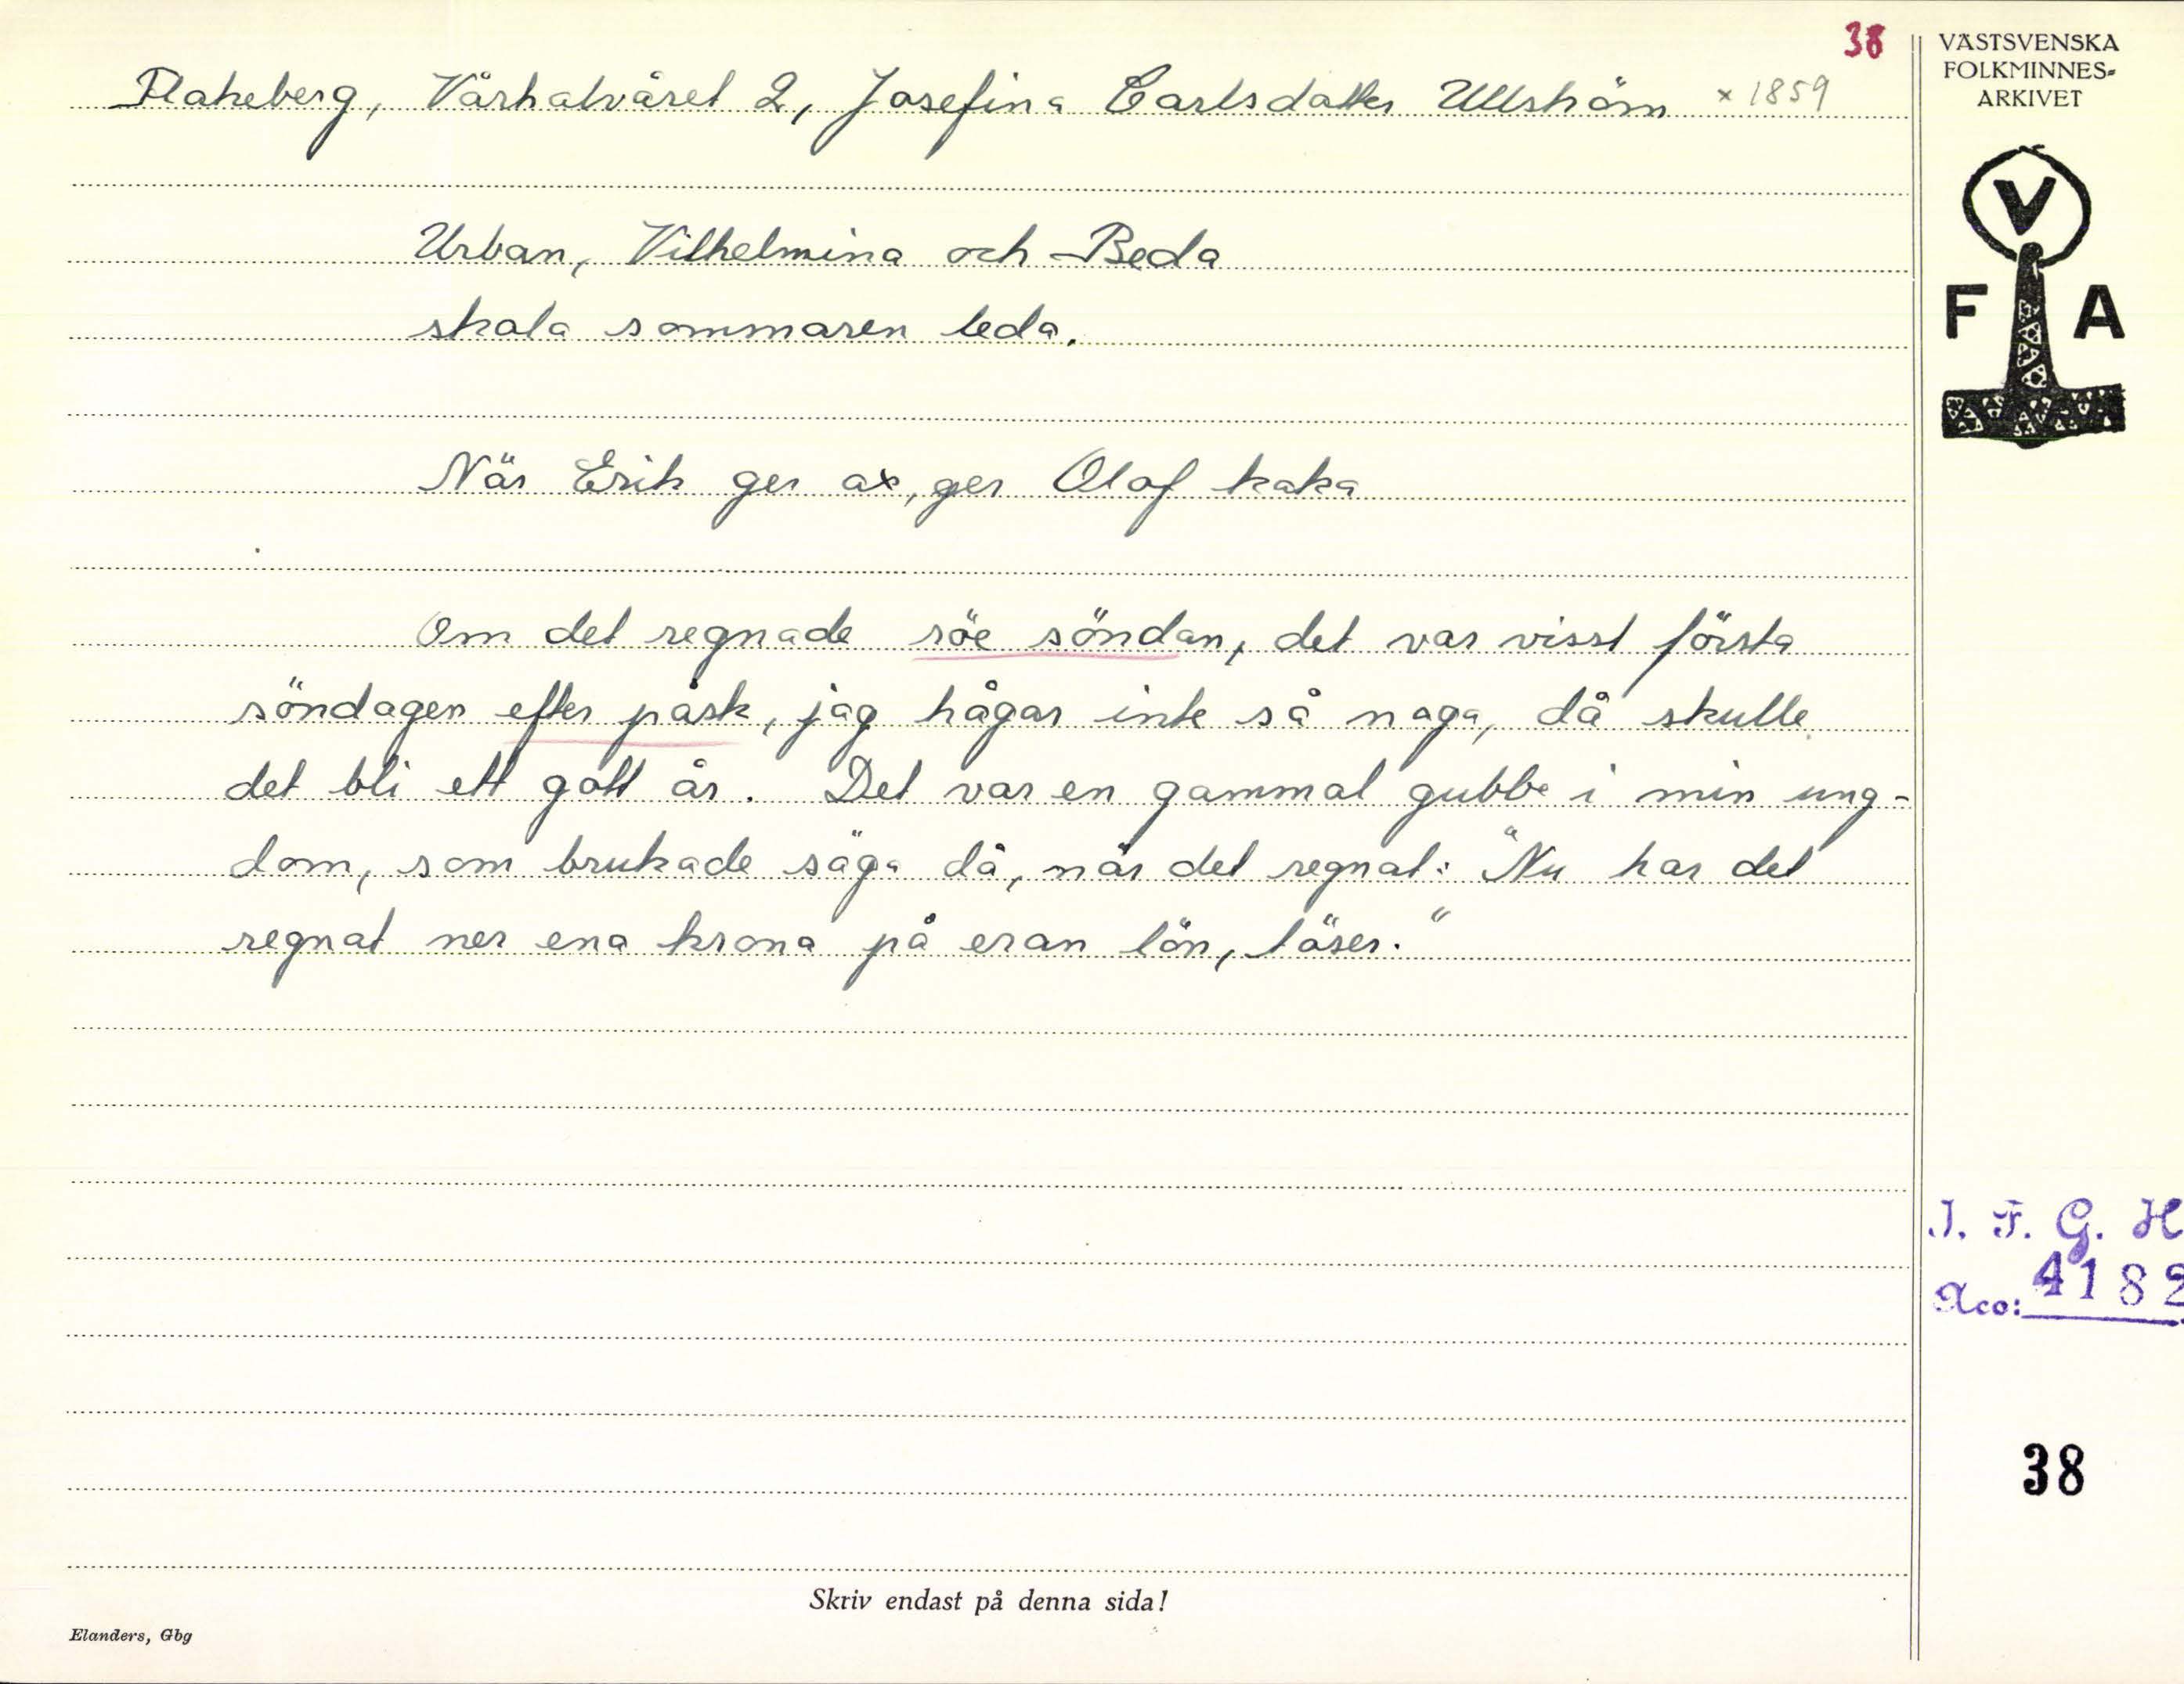 38
Flakeberg, Vårkalvåret 2, Josefina Carlsdotter Ullström × 1859
VÄSTSVENSKA
FOLKMINNES-
ARKIVET
V
F A
Urban, Vilhelmina och Beda
skola sommaren leda.
När Erik ger ax, ger Olof kaka
Om det regnade röe söndan, det var visst första
söndagen efter påsk, jag hågar inte så noga, då skulle
det bli ett gott år. Det var en gammal gubbe i min ung-
dom, som brukade säga då, när det regnat: "Nu har det
regnat ner ena krona på eran lön, töser."
I. F. G. H
Acc: 4182
38
Skriv endast på denna sida!
Elanders, Gbg